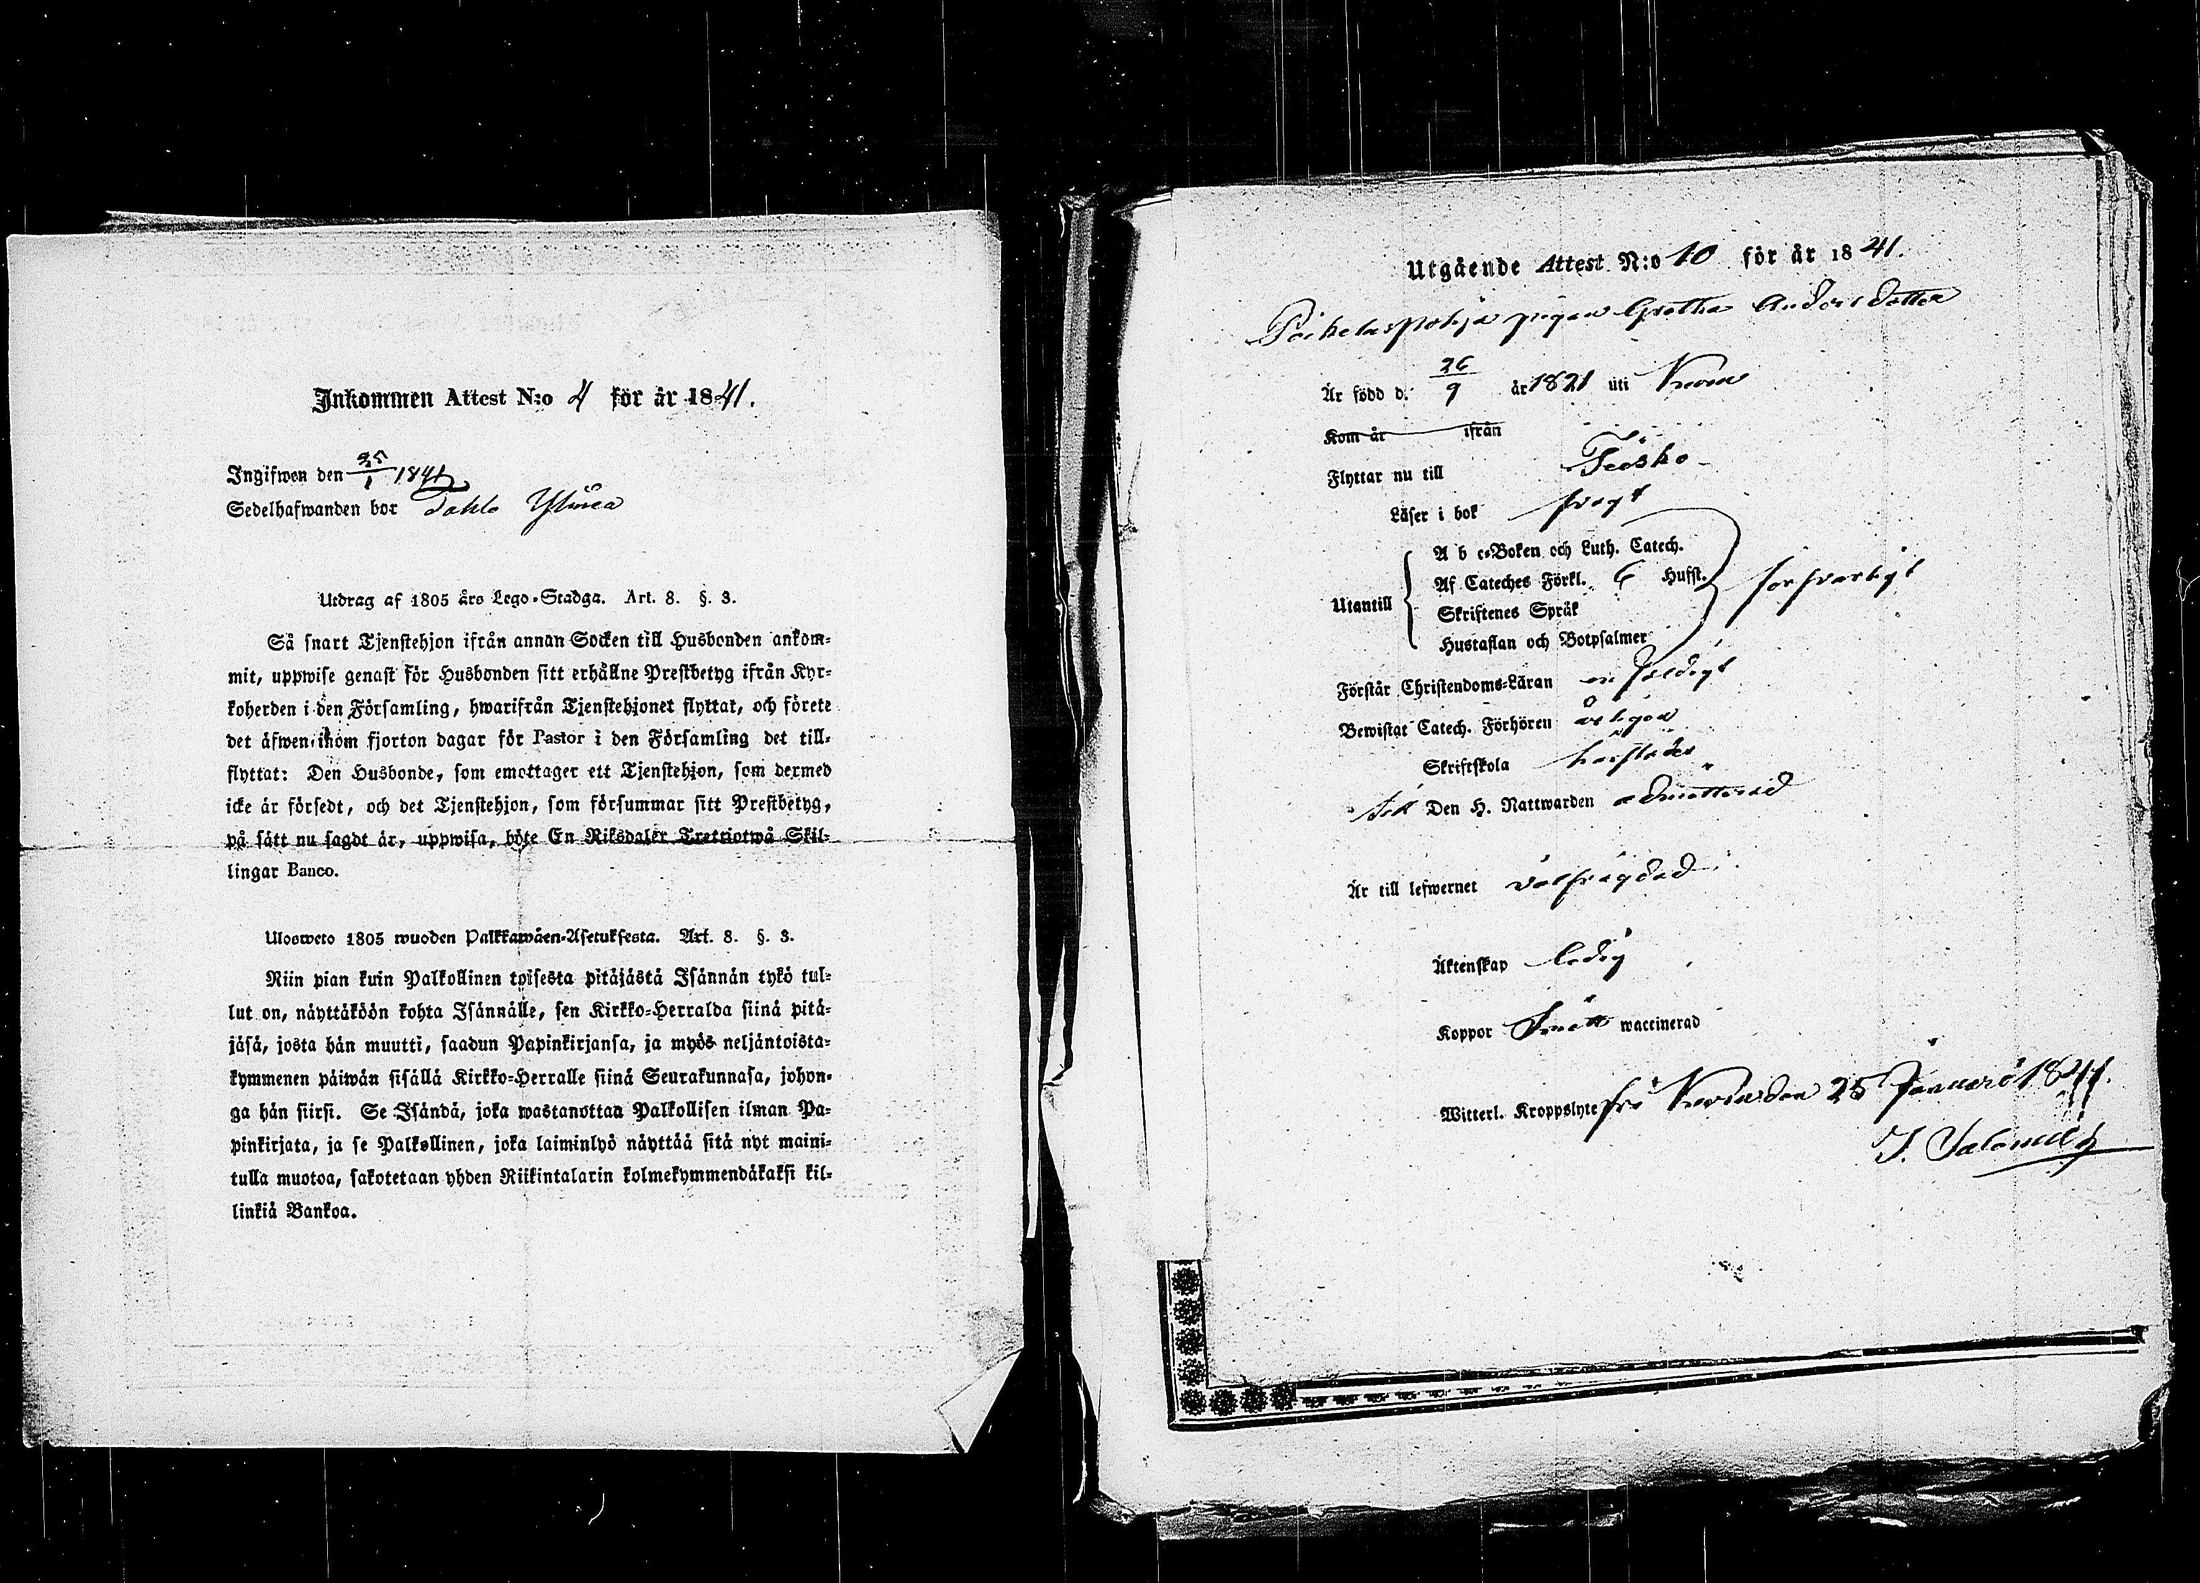 Inkommen Attest N:o 4 för år 1841.
Ingifwen den 25/1 1841
Sedelhafwanden bor Tahlo
Utdrag af 1805 års Lego-Stadga. Art. 8. §. 3.
Så snart Tjenstehjon ifrån annan Socken till Husbonden ankom-
mit, uppwise genast för Husbonden sitt erhållne Prestbetyg ifrån Kyr-
koherden i den Församling, hwarifrån Tjenstehjonet flyttat, och förete
det äfwen inom fjorton dagar för Pastor i den Församling det till-
flyttat: Den Husbonde, som emottager ett Tjenstehjon, som dermed
icke är försedt, och det Tjenstehjon, som försummar sitt Prestbetyg,
på sätt nu sagdt är, uppwisa, böte En Riksdaler Trettiotwå Skil-
lingar Banco.
Ulosweto 1805 wuoden Palkkawäen-Asetuksesta. Art. 8. §. 3.
Niin pian kuin Palkollinen toisesta pitäjästä Isännän tykö tul-
lut on, näyttäköön kohta Isännälle, sen Kirkko-Herralda siinä pitä-
jäsä, josta hän muutti, saadun Papinkirjansa, ja myös neljäntoista-
kymmenen päiwän sisällä Kirkko-Herralle siinä Seurakunnasa, johon-
ga hän siirsi. Se Isändä, joka wastanottaa Palkollisen ilman Pa-
pinkirjata, ja se Palkollinen, joka laiminlyö näyttää sitä nyt maini-
tulla muotoa, sakotetaan yhden Riikintalarin kolmekymmendäkaksi kil-
linkiä Bankoa.
Utgående Attest N:o 10 för år 1841.
pigan Gretha Andersdotter
Är född d. 26/9 år 1821 uti
Kom år ifrån
Flyttar nu till
Läser i bok svagt
A b c-Boken och Luth. Catech.
Af Cateches Förkl. 6 Hufst.
Utantill försvarligt
Skriftenes Språk
Hustaflan och Botpsalmer
Förstår Christendoms-Läran enfaldigt
Bewistat Catech. Förhören årligen
Skriftskola
till Den H. Nattwarden admitterad
Är till lefwernet välfrägdad
Äktenskap ledig
Koppor waccinerad
Witterl. Kroppslyte fri den 25 Januari 1841.